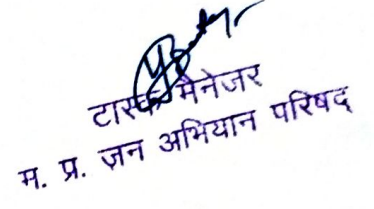 टास्क मैनेजर
म. प्र. जन अभियान परिषद